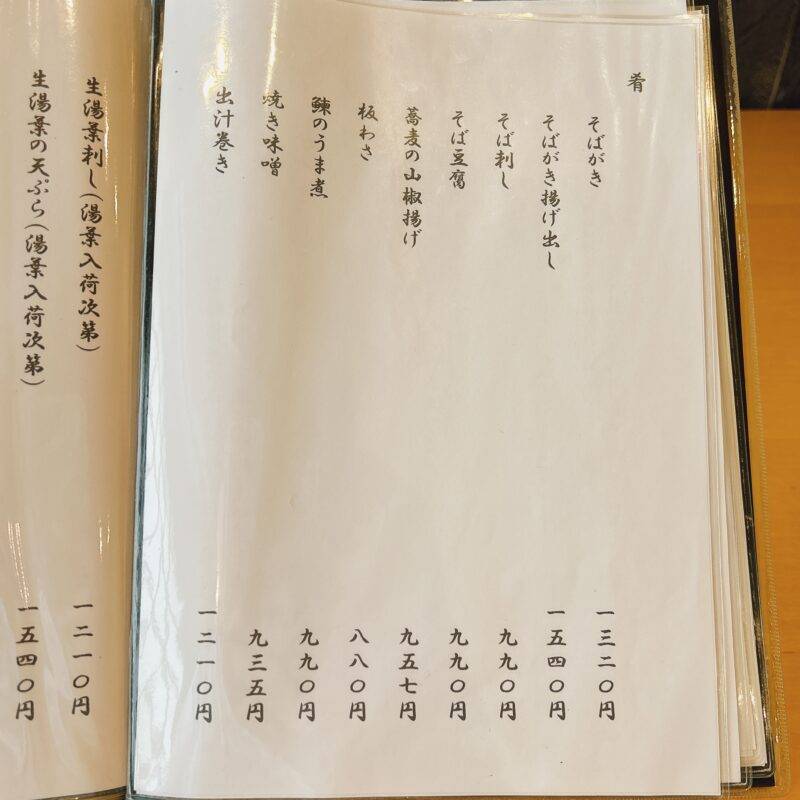 肴
そばがき 一三二〇円
そばがき揚げ出し 一五四〇円
そば刺し 九九〇円
そば豆腐 九九〇円
蕎麦の山椒揚げ 九五七円
板わさ 八八〇円
鰊のうま煮 九九〇円
焼き味噌 九三五円
出汁巻き 一二一〇円
生湯葉刺し(湯葉入荷次第) 一二一〇円
生湯葉の天ぷら(湯葉入荷次第) 一五四〇円